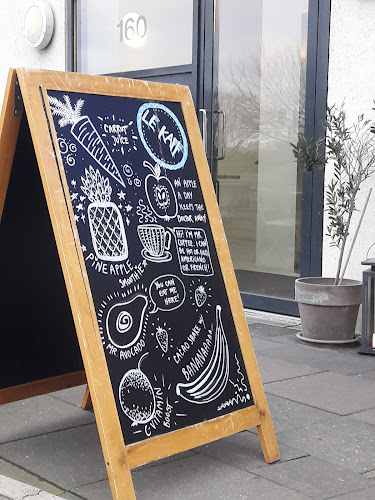 160
CARROT
JUICE
AN APPLE
A DAY
KEEPS THE
DOCTOR AWAY
PINEAPPLE
SMOOTHIE
HI! I'M MR.
COFFEE. I CAN
BE
AMERICANO
OR FRENCH!
YOU CAN
EAT ME
HERE!
MR. AVOCADO
CACAO SHAKE
BAANANAAA
CVITAMIN
BOOST